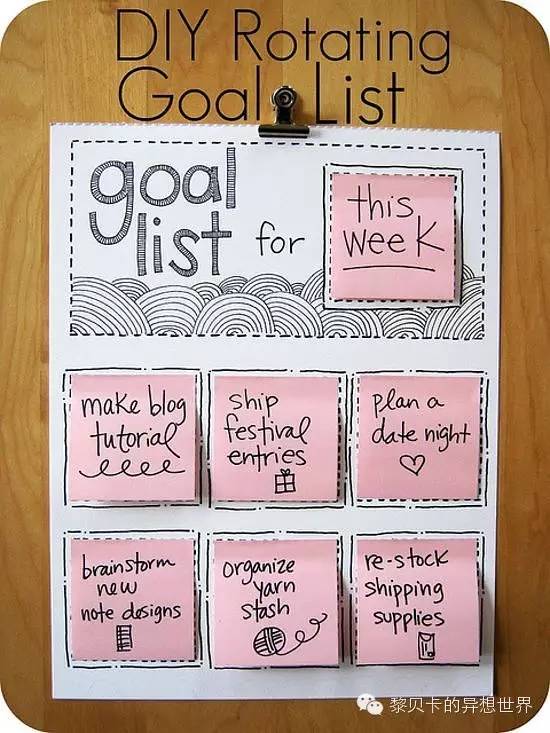 DIY Rotating
Goal List
goal
list for
this
week
make blog
tutorial
ship
festival
entries
plan a
date night
brainstorm
new
note designs
organize
yarn
stash
re-stock
shipping
supplies
黎贝卡的异想世界